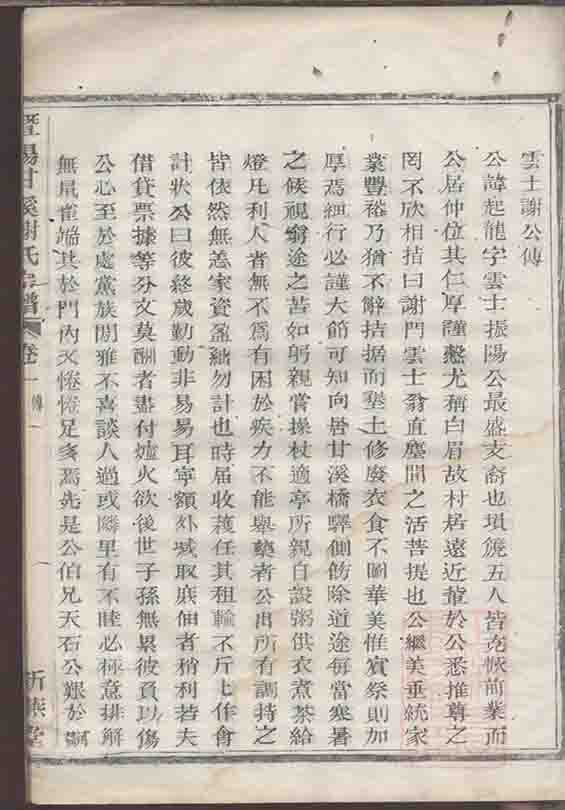 雲士謝公傳
公諱起龍字雲士振陽公最盛支裔也塤篪五人皆克恢前業而
公居仲位其仁厚謹慤尤稱白眉故村居遠近輩於公悉推尊之
罔不欣相拮曰謝門雲士翁直塵間之活菩提也公繼美垂統家
業豐裕乃猶不辭拮据而墾土修廢衣食不圖華美惟賓祭則加
厚焉細行必謹大節可知向居甘溪橋驛側飭除道途每當寒暑
之候視窮途之苦如躬親嘗操杖適亭所親自設粥供衣煮茶給
燈凡利人者無不為有困於疾力不能舉藥者公出所有調持之
皆依然無恙家資盈絀勿計也時屆收穫任其租輸不斤上作會
計狀公曰彼終歲勤動非易易耳寧額外減取庶佃者稍利若夫
借貸票據等分文莫酬者盡付爐火欲後世子孫無累彼負以傷
公心至於處黨族間雅不喜談人過或隣里有不睦必極意排解
無鼠雀端其於門內又惓惓足多焉先是公伯兄天石公艱於嗣
暨陽甘溪謝氏宗譜 卷一 傳